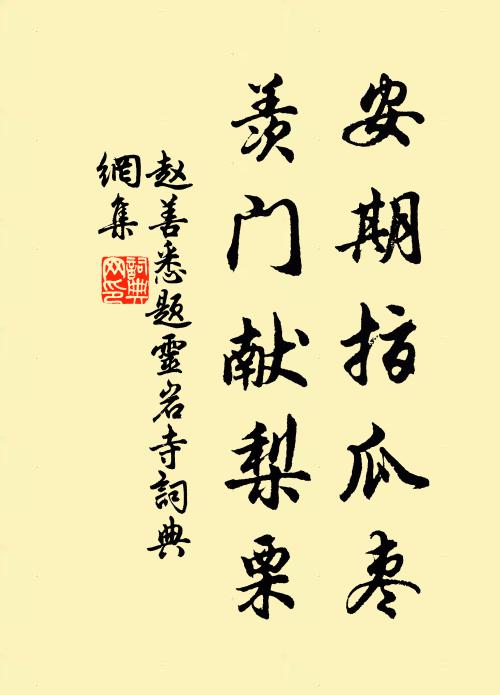 安期指瓜枣
羡门献梨栗
赵善悉题靈岩寺詞典
網集
詞典
网印